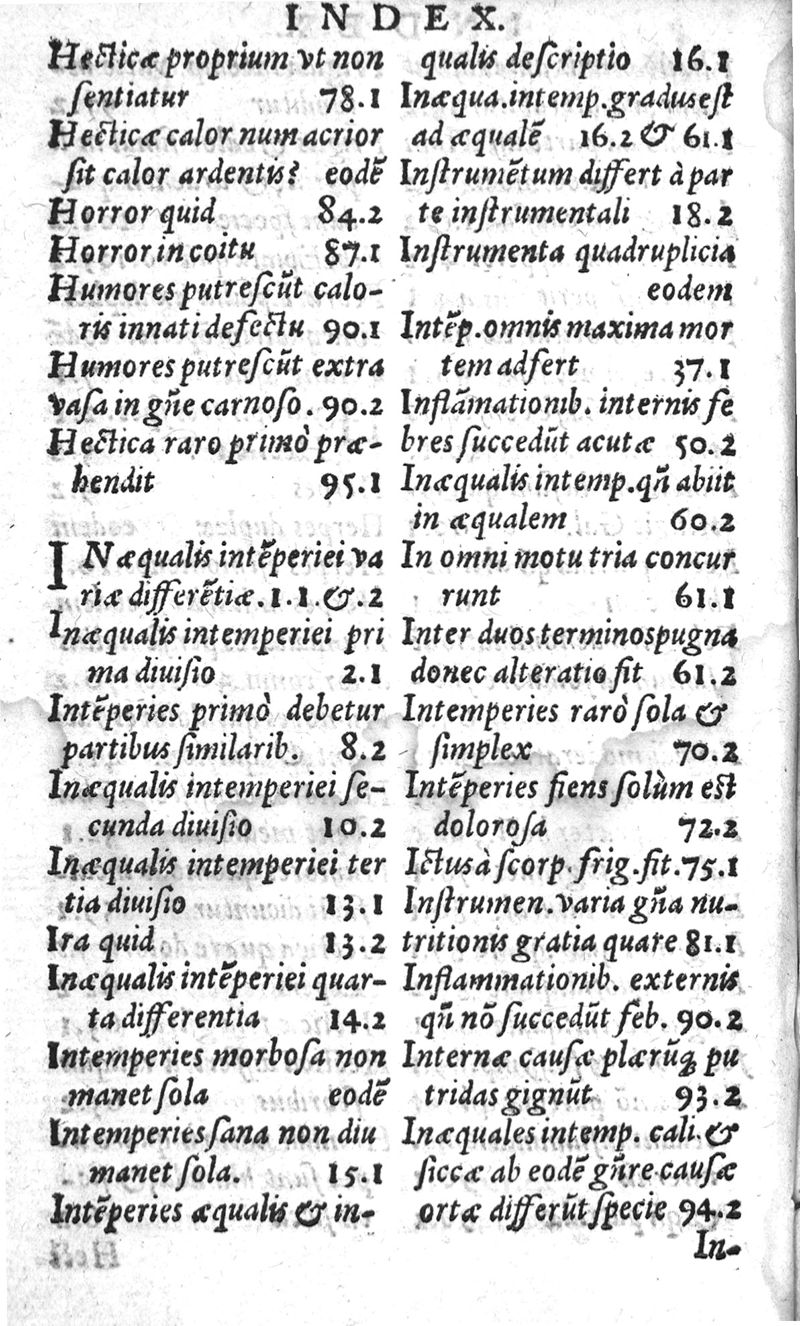 INDEX.
Hecticæ proprium vt non
ſentiatur 78.1
Hecticæ calor num acrior
ſit calor ardentis? eodē
Horror quid 84.2
Horror in coitu 87.1
Humores putreſcūt calo-
ris innati defectu 90.1
Humores putreſcūt extra
vaſa in gñe carnoſo. 90.2
Hectica raro primò præ-
hendit 95.1
INæqualis intēperiei va
riæ differētiæ. 1. 1. &. 2
Inæqualis intemperiei pri
ma diuiſio 2.1
Intēperies primò debetur
partibus ſimilarib. 8.2
Inæqualis intemperiei ſe-
cunda diuiſio 10.2
Inæqualis intemperiei ter
tia diuiſio 13.1
Ira quid 13.2
Inæqualis intēperiei quar-
ta differentia 14.2
Intemperies morboſa non
manet ſola eodē
Intemperies ſana non diu
manet ſola. 15.1
Intēperies æqualis & in-
qualis deſcriptio 16.1
Inæqua. intemp. gradus eſt
ad æqualē 16.2 & 61.1
Inſtrumētum differt à par
te inſtrumentali 18.2
Inſtrumenta quadruplicia
eodem
Intēp. omnis maxima mor
tem adfert 37.1
Inflāmationib. internis fe
bres ſuccedūt acutæ 50.2
Inæqualis intemp. qñ abiit
in æqualem 60.2
In omni motu tria concur
runt 61.1
Inter duos terminos pugna
donec alteratio fit 61.2
Intemperies rarò ſola &
ſimplex 70.2
Intēperies fiens ſolùm eſt
doloroſa 72.2
Ictus à ſcorp. frig. fit. 75.1
Inſtrumen. varia gña nu-
tritionis gratia quare 81.1
Inflammationib. externis
qñ nō ſuccedūt feb. 90.2
Internæ cauſæ plærūq; pu
tridas gignūt 93.2
Inæquales intemp. cali. &
ſiccæ ab eodē gñre cauſæ
ortæ differūt ſpecie 94.2
In-